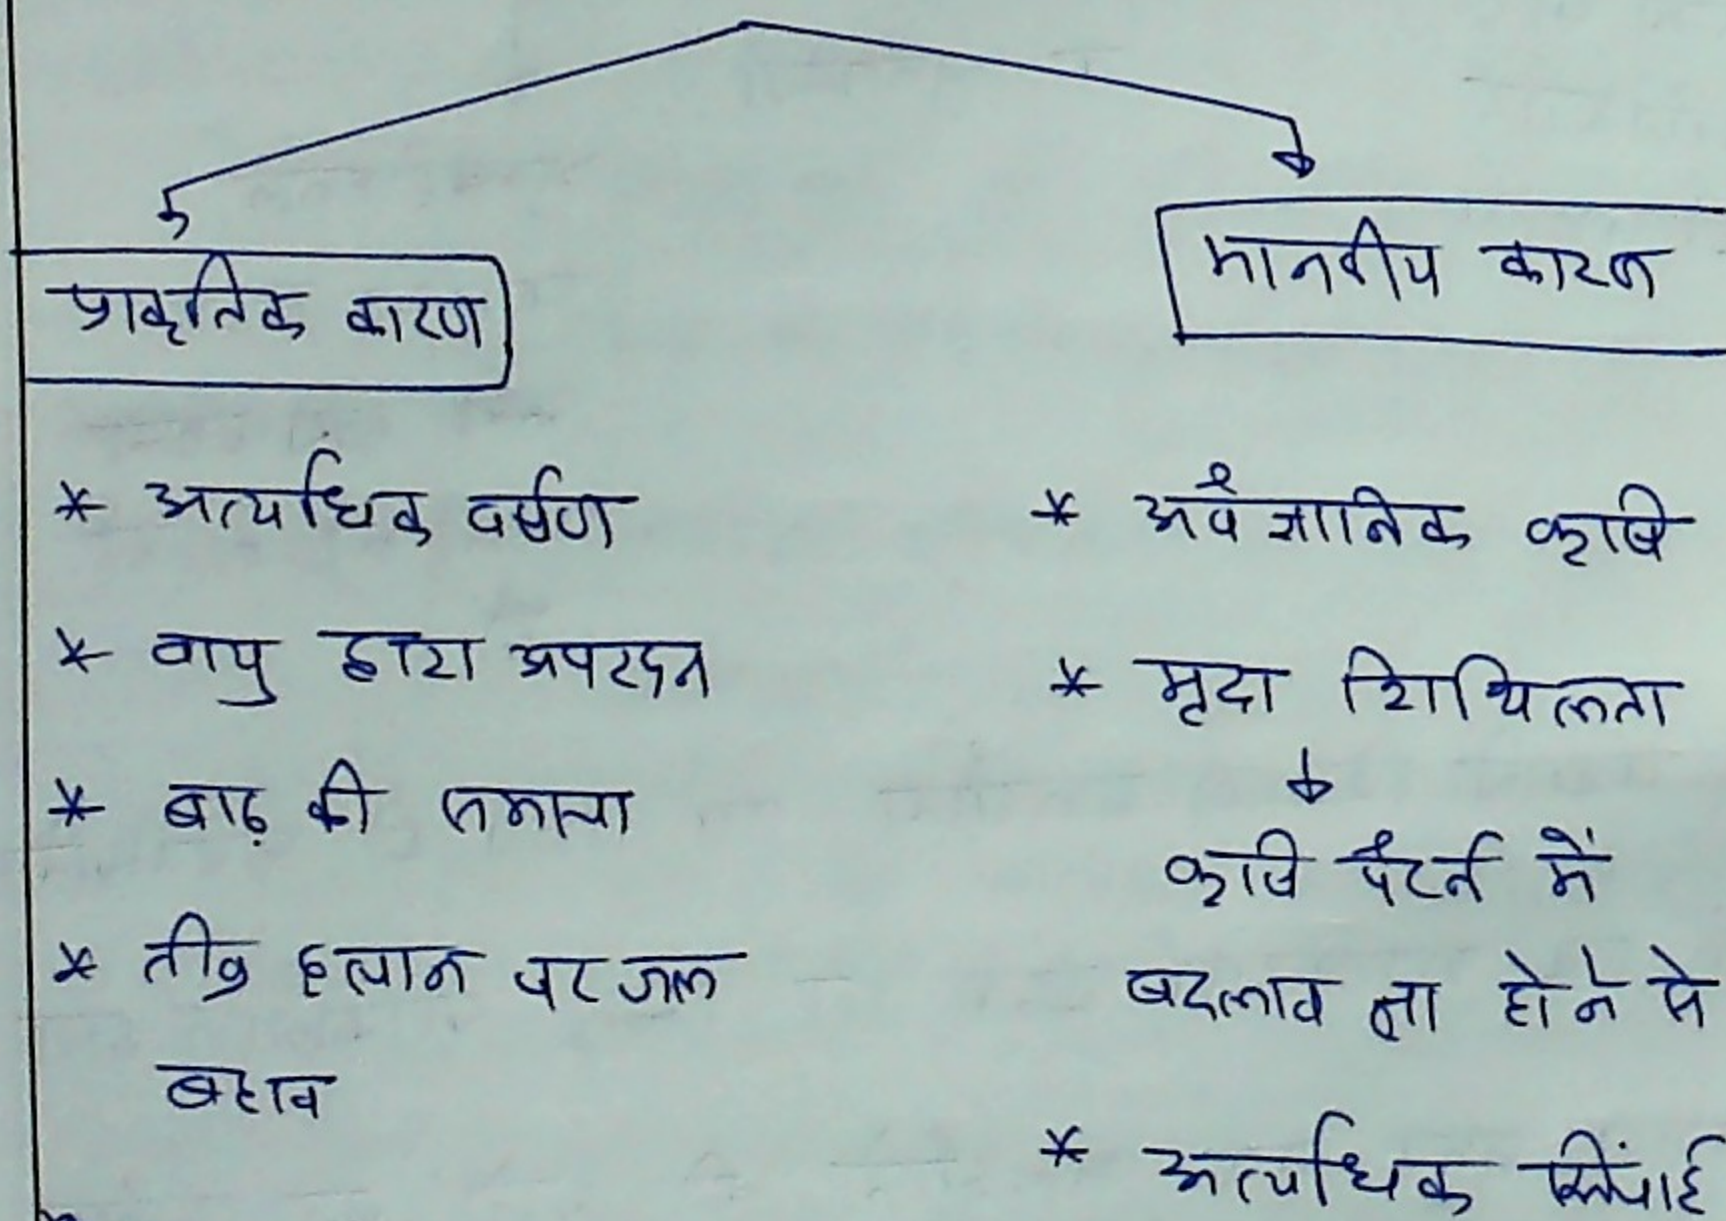 प्राकृतिक कारण
* अत्यधिक वर्षण
* वायु द्वारा अपरदन
* बाढ़ की समस्या
* तीव्र ढलान पर जल
बहाव
मानवीय कारण
* अवैज्ञानिक कृषि
* मृदा शिथिलता
↓
कृषि पैटर्न में
बदलाव ना होने से
* अत्यधिक सिंचाई